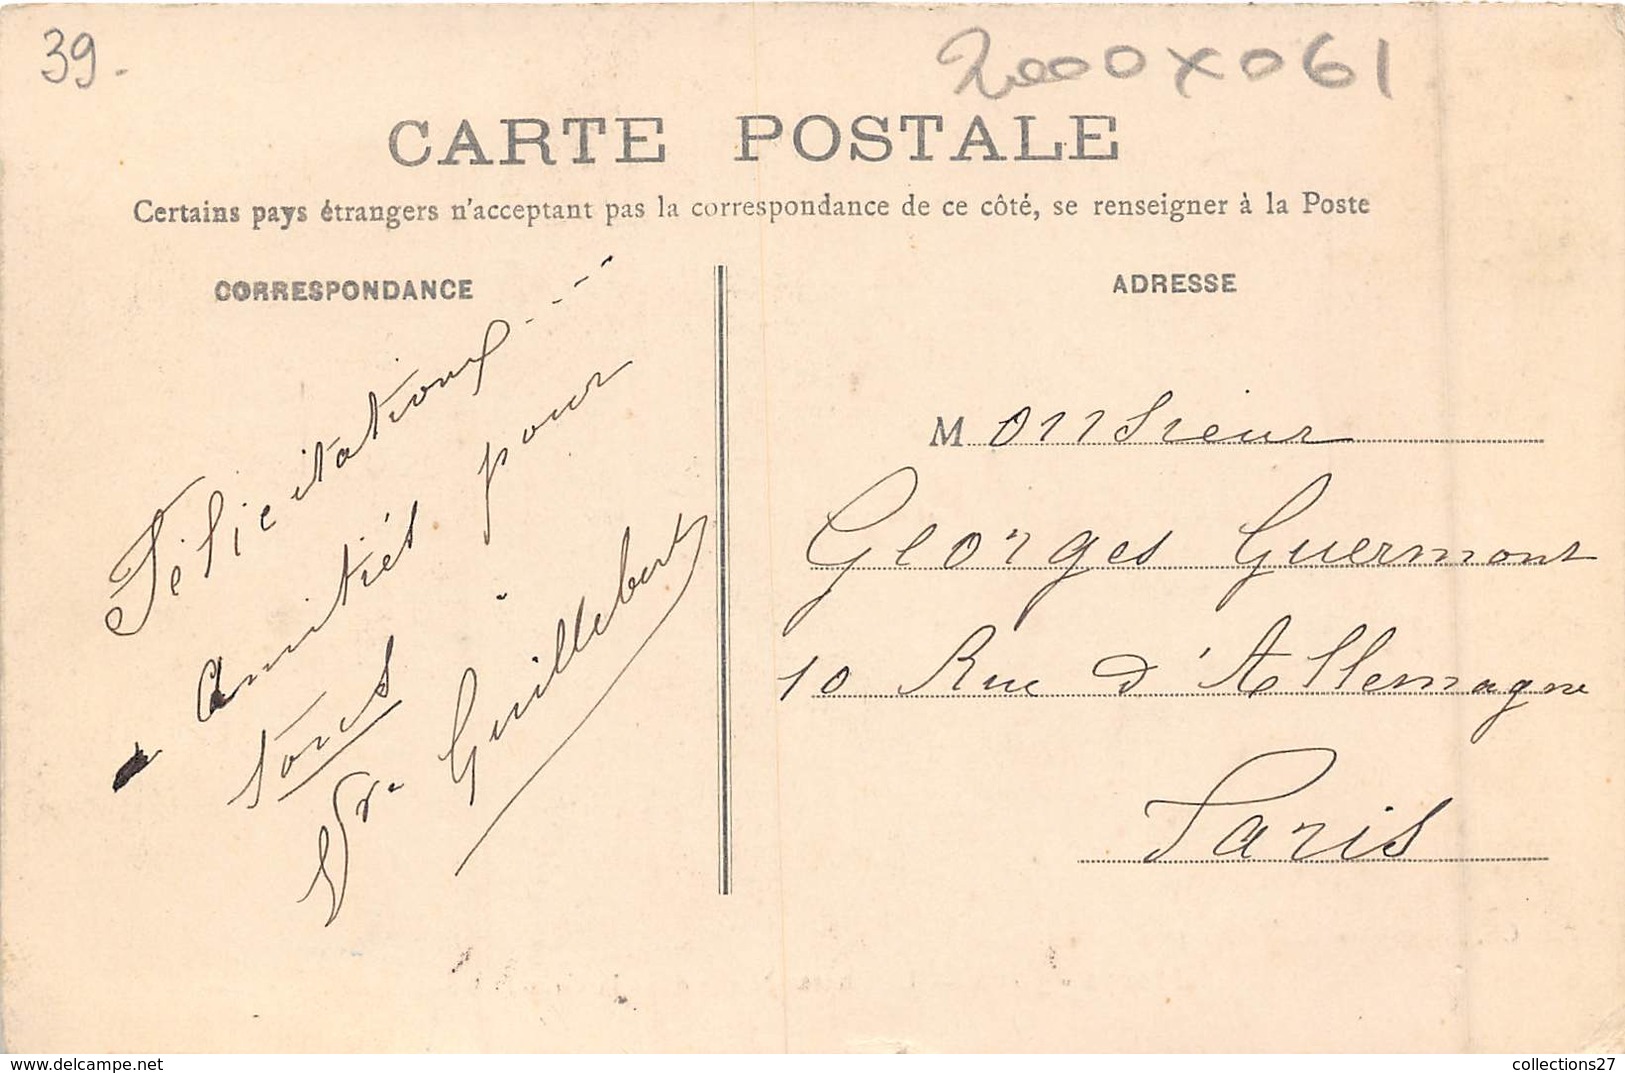 39.
2000X061
CARTE POSTALE
Certains pays étrangers n'acceptant pas la correspondance de ce côté, se renseigner à la Poste
CORRESPONDANCE
Félicitations ----
amitiés pour
tous
Guillebert
ADRESSE
Monsieur
Georges Guermont
10 Rue d'Allemagne
Paris
www.delcampe.net
collections27